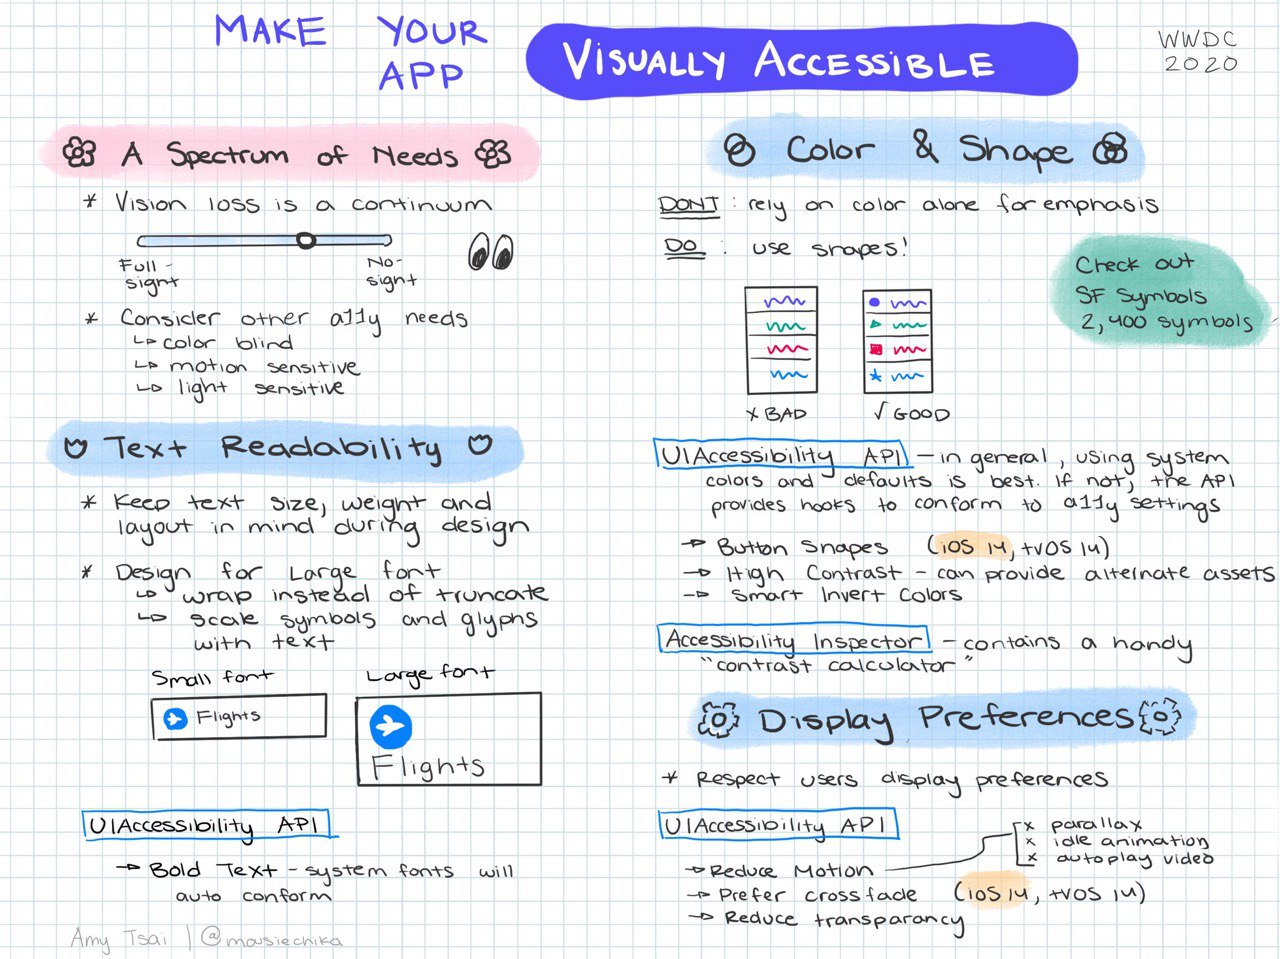 MAKE YOUR
APP
VISUALLY ACCESSIBLE
WWDC
2020
A Spectrum of Needs
* Vision loss is a continuum
Full-
sight
No-
sight
* Consider other a11y needs
↳ color blind
↳ motion sensitive
↳ light sensitive
Text Readability
* Keep text size, weight and
layout in mind during design
* Design for Large font
↳ wrap instead of truncate
↳ scale symbols and glyphs
with text
Small font
Large font
Flights
Flights
UIAccessibility API
→ Bold Text - system fonts will
auto conform
Amy Tsai | @mousiechika
Color & Shape
DONT : rely on color alone for emphasis
DO : use shapes!
Check out
SF Symbols
2,400 symbols
x BAD
√ GOOD
UIAccessibility API - in general, using system
colors and defaults is best. If not, the API
provides hooks to conform to a11y settings
→ Button Shapes (iOS 14, tvOS 14)
→ High Contrast - can provide alternate assets
→ Smart Invert Colors
Accessibility Inspector - contains a handy
"contrast calculator"
Display Preferences
* Respect users display preferences
UIAccessibility API
x parallax
x idle animation
x autoplay video
→ Reduce Motion
→ Prefer crossfade (iOS 14, tvOS 14)
→ Reduce transparancy